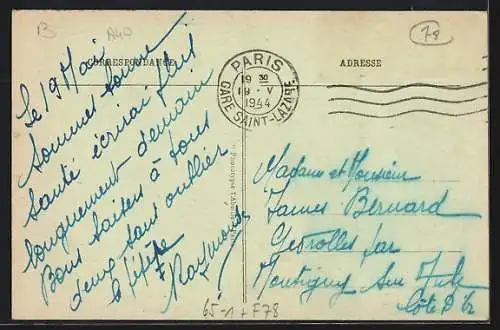 B
A40
78
CORRESPONDANCE
ADRESSE
PARIS
19 30
19 - V
1944
GARE SAINT-LAZARE
Le 19 Mai
Sommes bonne
Santé écrirai plus
longuement demain
Bons baisers à tous
deux sans oublier
Raymonde
Madame et Monsieur
James Bernard
Gevrolles par
Montigny sur Aube
Côte d'Or
65-1 + F78